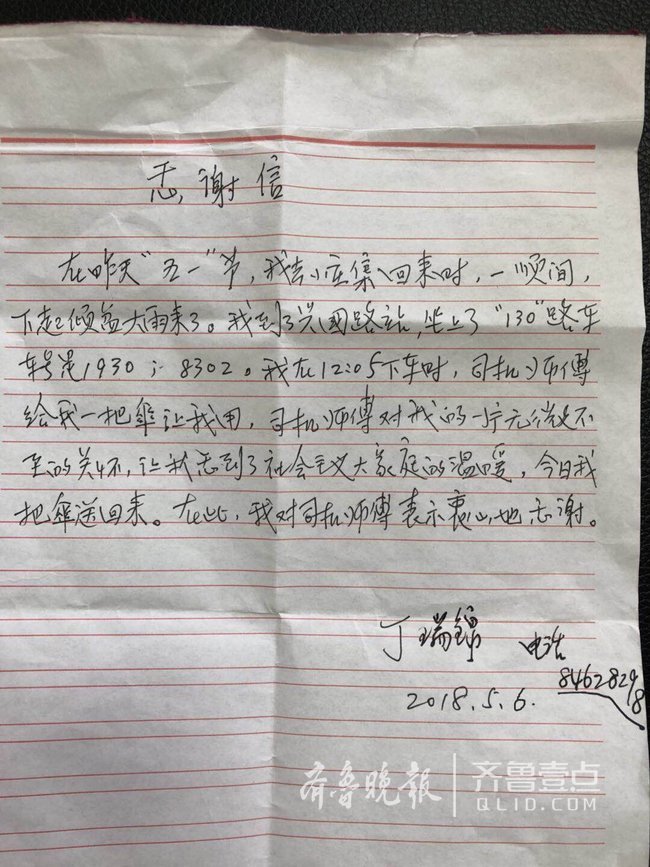 感谢信
在昨天“五一”节，我去小庄集回来时，一顺间，
下起倾盆大雨来了。我到了兴国路站，坐上了“130”路车
车号是1930；8302。我在12:05下车时，司机师傅
给我一把伞让我用，司机师傅对我的一片无微不
至的关怀，让我感到了社会主义大家庭的温暖，今日我
把伞送回来。在此，我对司机师傅表示衷心地感谢。
丁瑞锦 电话
84628298
2018.5.6.
齐鲁晚报 齐鲁壹点
QLID.COM